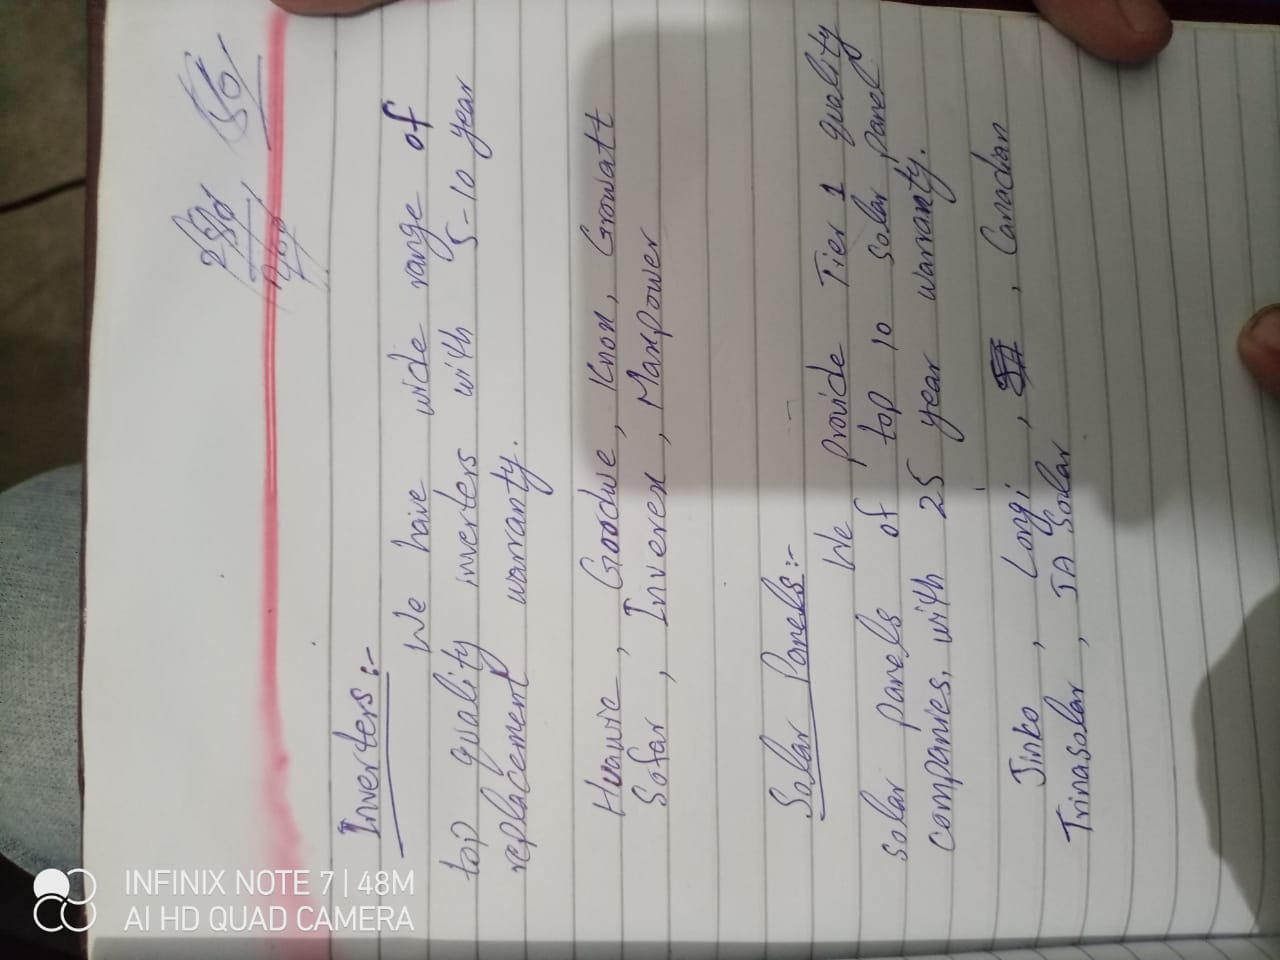 Inverters:-
We have wide range of
top quality inverters with 5-10 year
replacement warranty.
Huawie, Goodwe, Knox, Growatt
Sofar, Inverex, Maxpower
Solar Panels:-
We provide Tier 1 quality
solar panels of top 10 solar panel
companies, with 25 year warranty.
Jinko, Longi, , Canadian
Trinasolar, JA Solar
INFINIX NOTE 7 | 48M
AI HD QUAD CAMERA